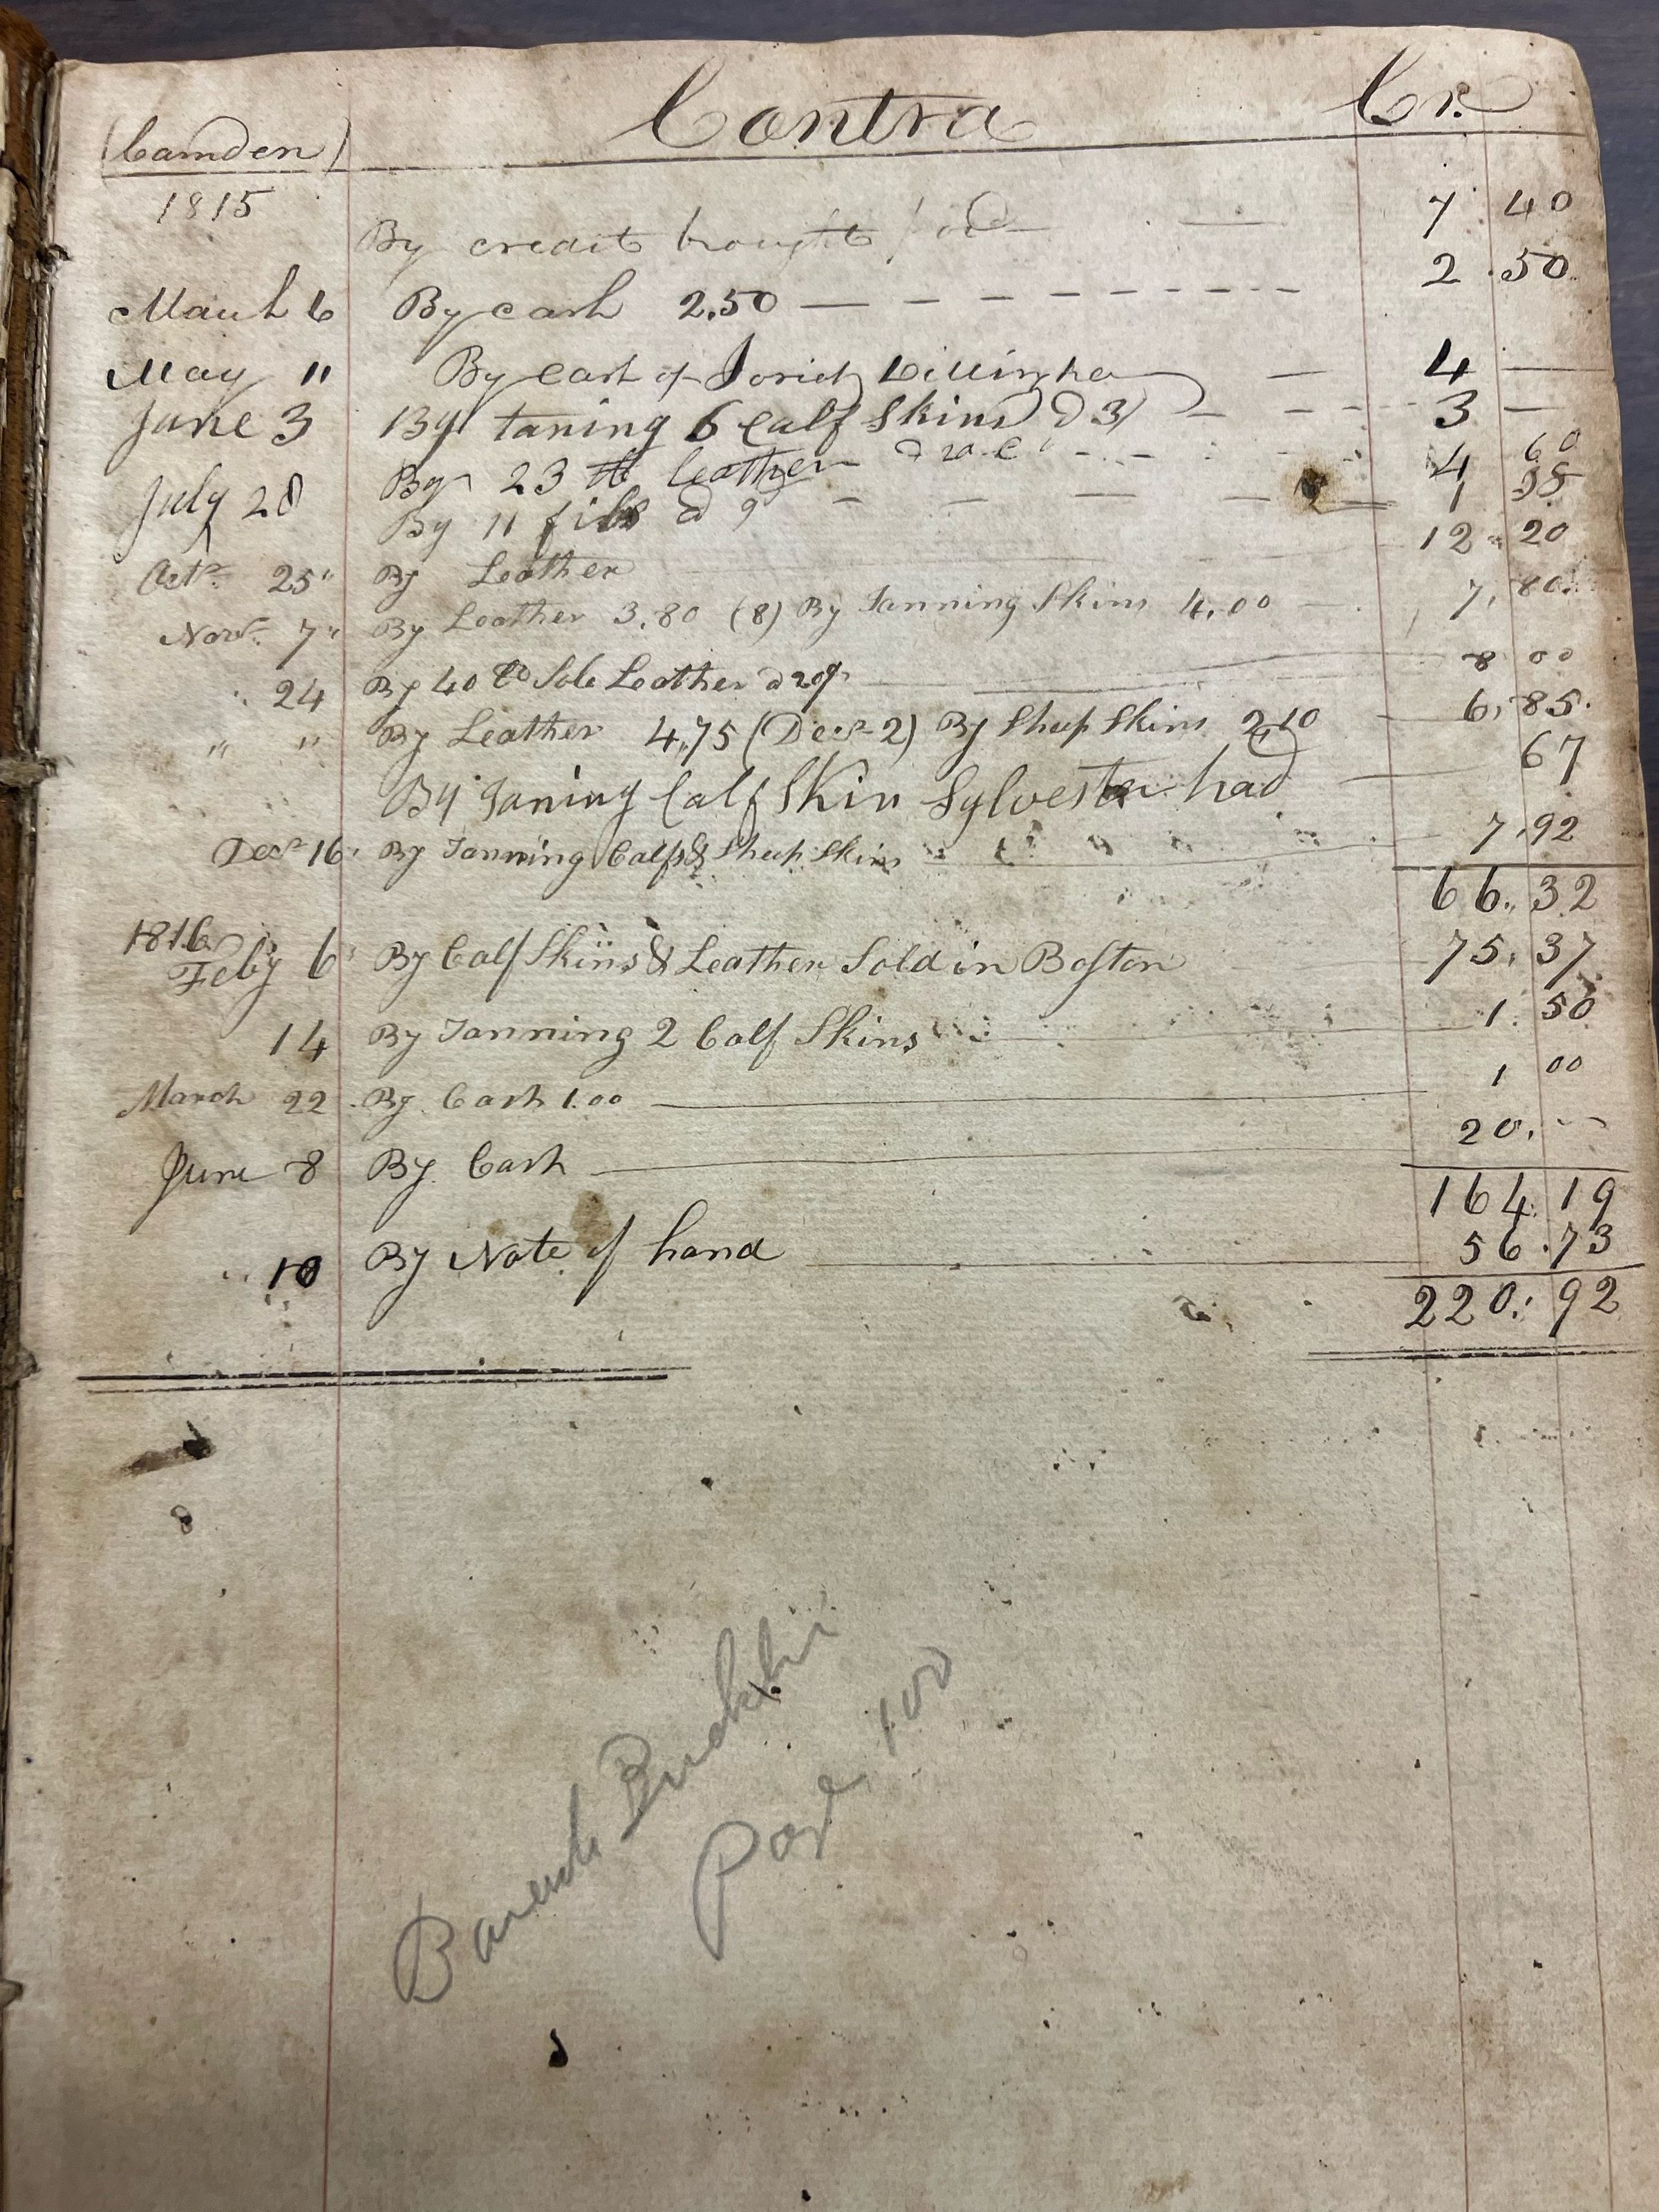 Contra Cr.
Camden
1815
By credit brought ford 7 40
March 6 By cash 2.50 2.50
May 11 By cash of 4 —
June 3 By taning 6 Calf Skins @ 3/ 3 —
July 28 By 23 lb leather @ 20 c 4 60
By 11 @ 9d 1 38
Octr. 25 By Leather 12.20
Novr. 7 By Leather 3.80 (8) By Tanning Skins 4.00 7.80
" 24 By 40 lb Sole Leather @ 20 8 00
" " By Leather 4.75 (Decr 2) By Sheep Skins 2.10 6.85
By Taning Calf Skin Sylvester had 67
Decr 16 By Tanning Calf & Sheep Skins 7.92
66.32
1816
Feby 6 By Calf Skins & Leather Sold in Boston 75.37
14 By Tanning 2 Calf Skins 1.50
March 22 By Cash 1.00 1 00
June 8 By Cash 20. --
164.19
" 10 By Note of hand 56.73
220.92
8
100